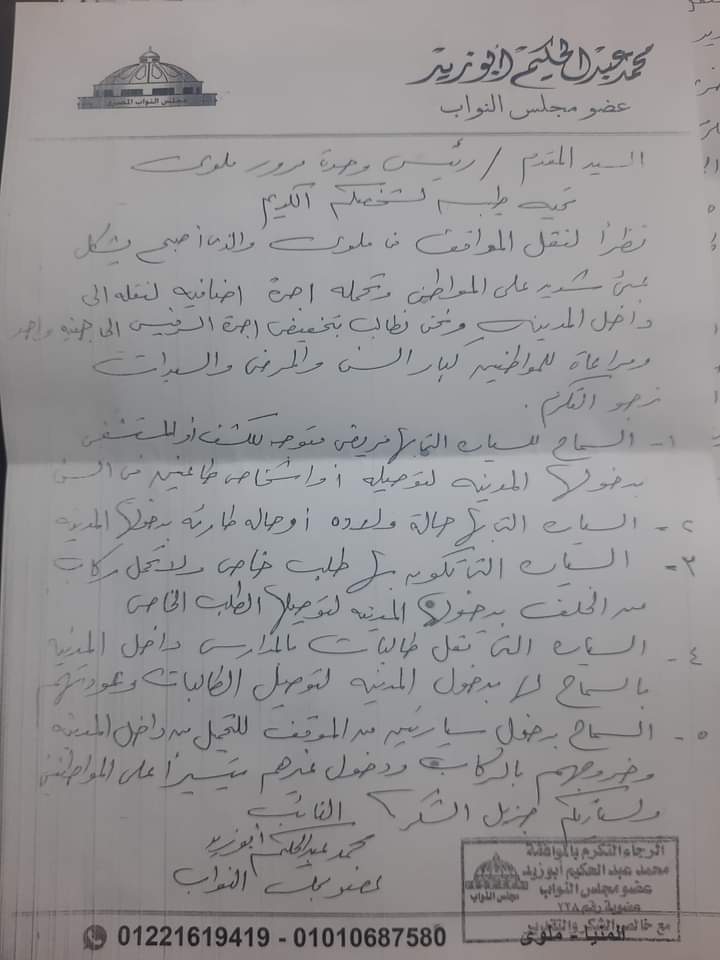 محمد عبد الحكيم أبو زيد
عضو مجلس النواب
مجلس النواب المصري
السيد المقدم / رئيس وحدة مرور ملوى
تحيه طيبه لشخصكم الكريم
نظراً لنقل المواقف فى ملوى والذى أصبح يشكل
عبئ شديد على المواطنين وتحمله اجرة اضافيه لنقله الى
داخل المدينه ونحن نطالب بتخفيض اجرة السرفيس الى جنيه واحد
ومراعاة للمواطنين كبار السن والمرضى والسيدات
نرجو التكرم .
١- السماح للسياره التى بها مريض متوجه للكشف أو المستشفى
بدخولها المدينه لتوصيله أو اشخاص طاعنين فى السن
٢- السياره التى بها حالة ولاده أو حاله طارئه بدخولها المدينه
٣- السياره التى تكون بها طلب خاص ولا تحمل ركاب
من الخلف بدخولها المدينه لتوصيل الطلب الخاص
٤- السياره التى تنقل طالبات بالمدارس داخل المدينه
بالسماح لها بدخول المدينه لتوصيل الطالبات وعودتهم
٥- السماح بدخول سيارتين من الموقف للتحميل من داخل المدينه
وخروجهم بالركاب ودخول غيرهم تيسيراً على المواطنين
ولسيادتكم جزيل الشكر
النائب
محمد عبد الحكيم أبوزيد
عضو مجلس النواب
الرجاء التكرم بالموافقة
محمد عبد الحكيم أبوزيد
عضو مجلس النواب
عضوية رقم ٢٢٨
مع خالص الشكر والتقدير
مجلس النواب
01221619419 - 01010687580
المنيا - ملوى